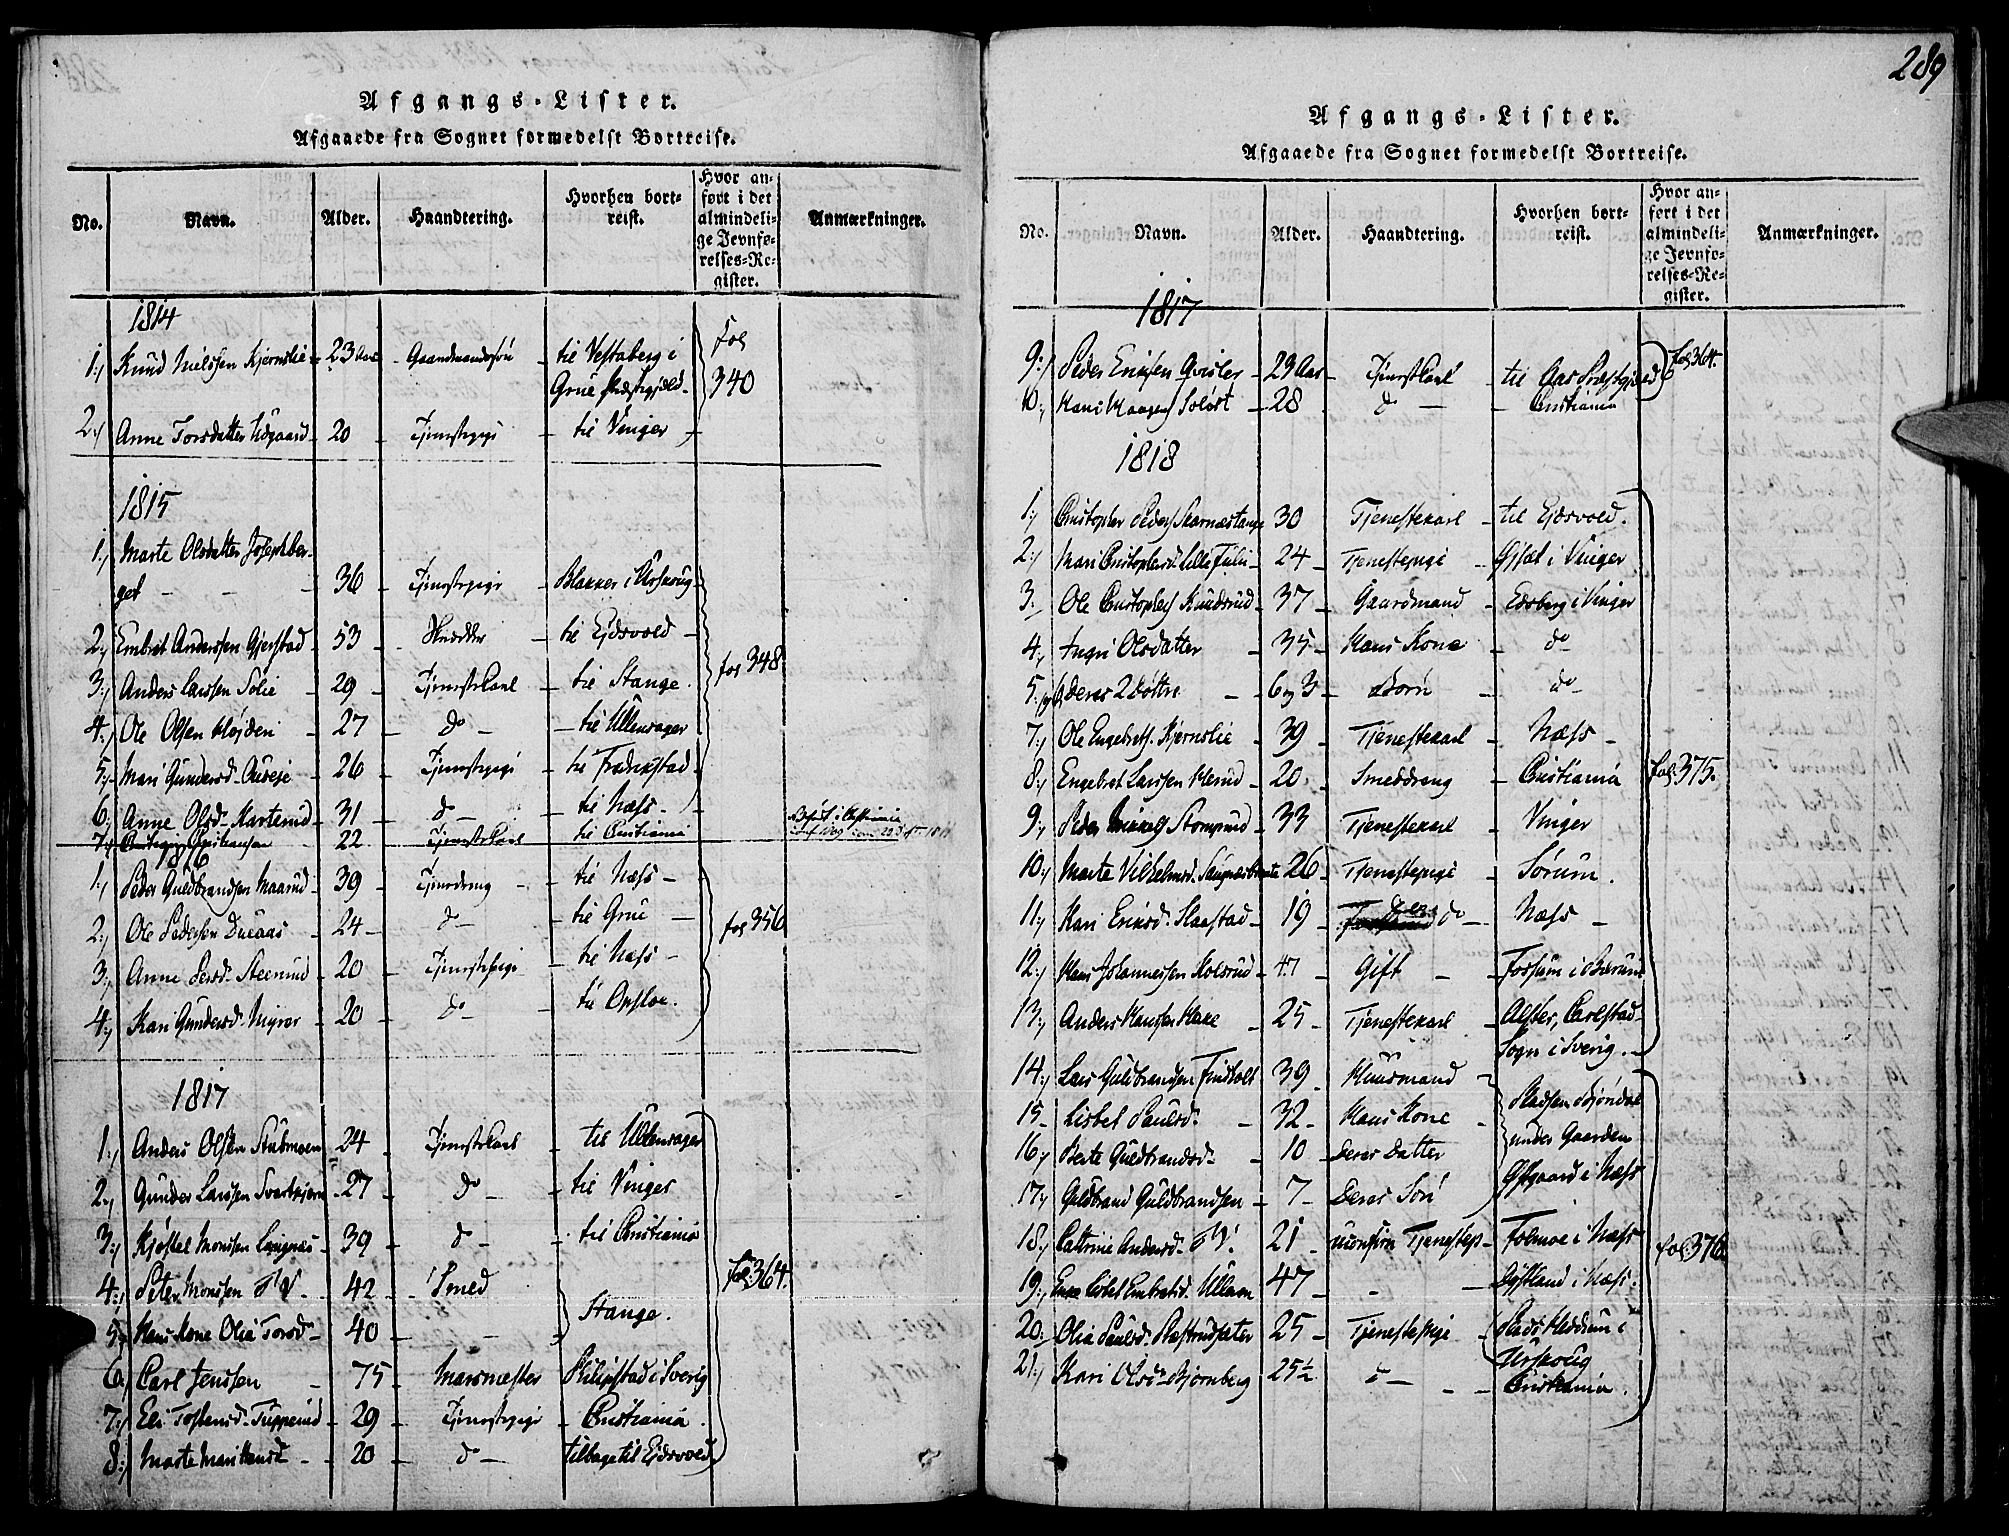 289
Afgangs-Lister.
Afgaaede fra Sognet formedelst Bortreise.
No. Navn. Alder. Haandtering. Hvorhen bortreist. Hvor anført i det almindelige Jevnførelses-Register. Anmærkninger.
1814
1.) Knud Nielssen Kjernslie 23 Aar Gaardmandssøn til Vestaberg i
Grue Præstegjeld. Fol 340
2.) Anne Torsdatter 20 Tjenestepige til Vinger
1815
1.) Marte Olsdatter Josephber-
get 36 Tjenestepige Blakker i Urskoug
2.) Embret Anderssen Gjerstad 53 til Ejdsvold
3.) Anders Larssen Solie 29 Tjenestekarl til Stange. fol 348
4.) Ole Olsen Højden 27 do til Ullensager
5.) Mari Gundersd. 26 Tjenestepige til Fredrikstad
6.) Anne Olsd. Karterud 31 do til Næss
7.) Christiansen 22 Tjenestekarl til Christiania
1816
1.) Peder Guldbrandsen Maarud 39 Tjenestedreng til Næss
2.) Ole Pedersen 24 do til Grue fol 356
3.) Anne Persd. Steenrud 20 Tjenestepige til Næss
4.) Kari Gundersd. Myrer 20 do til Opsloe.
1817
1.) Anders Olsen Stubmoen 24 Tjenestekarl til Ullensager
2.) Gunder Larssen Svartkjern 27 do til Vinger
3.) Kjøstel Monssen 39 do til Christiania
4.) Peter Monssen 42 Smed fol. 364.
5.) Hans Kone Olia Torsd. 40 Stange.
6.) Carl Jenssen 75 Marsmester Philipstad i Sverig
7.) Eli Tostensd. Tupperud 29 Tjenestepige Christiania.
8.) Marte Mari Hansd. 20 do tilbage til Ejdsvold
Afgangs-Lister.
Afgaaede fra Sognet formedelst Bortreise.
No. Navn. Alder. Haandtering. Hvorhen bortreist. Hvor anført i det almindelige Jevnførelses-Register. Anmærkninger.
1817
9.) Peder Erichsen Qvisler 29 Aar Tjenstkarl til Aas Præstegjeld fol 364.
10.) Hans Haagens. Soløst 28 do Christiania
1818
1.) Christopher Peders. Skarnæstangen 30 Tjenestekarl til Ejdsvold.
2.) Mari Christophersd. Lille Fulu 24 Tjenestepige i Vinger
3. Ole Christophers. Knudsrud 37 Gaardmand Edsberg i Vinger
4.) Ingri Olsdatter 35 Hans Kone do
5. og 6 deres 2 døttre 6 og 3 Børn do
7.) Ole Engebrets. Kjernslie 39 Tjenestekarl Næss
8.) Engebret Larssen Herud 20. Smeddreng Christiania fol. 375.
9.) Peder Storgrud 33 Tjenestekarl Vinger
10.) Marte Vilhelmsd. 26 Tjenestepige Sørum.
11.) Kari Eriksd. Slaastad 19 do Næss
12.) Hans Johannessen Holsrud 47 Gift Fossum i Bærum
13.) Anders Hanssen Hake 25 Tjenestekarl Alster, Carlstad
Sogn i Sverig.
14.) Lars Guldbrandsen Findholt 39 Huusmand Pladsen
15. Lisbet Paulsd. 32 Hans Kone under Gaarden
16.) Berte Guldbrandsd. 10 Deres datter
17.) Guldbrand Guldbrandsen 7 Deres Søn Østgaard i Næss
18.) Cattrine Andersd. 21 ukonfirm Tjenestep. Folmoe i Næss fol. 376.
19.) Enke Lisbet Embretsd. Ulleren 47 i Næss.
20.) Olia Paulsd. 25 Tjenestepige Plads i
Urskoug
21.) Kari Olsd. Bjørnberg 25½ do Christiania.